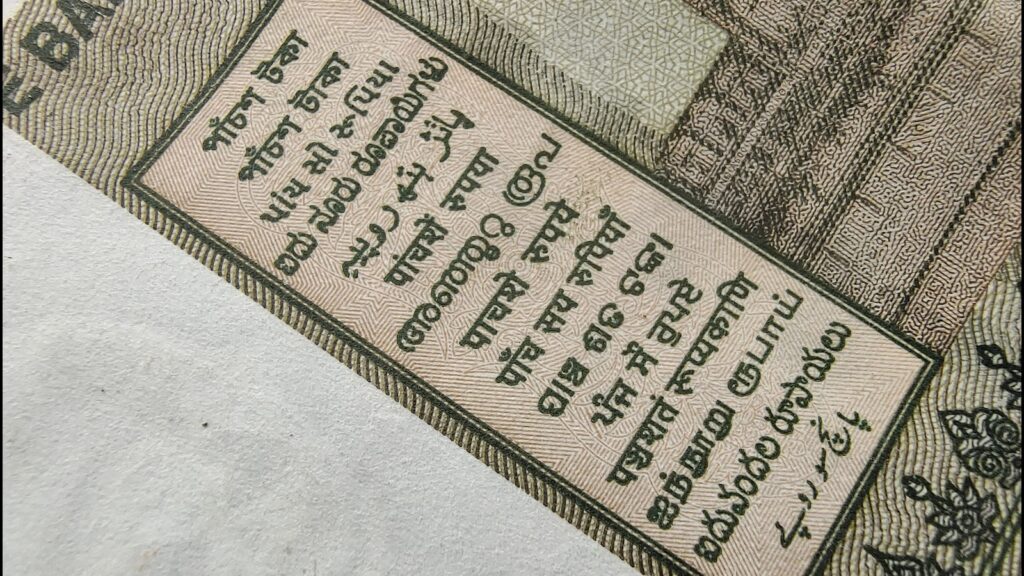 E BAN
পাঁচশ টকা
পাঁচশ টাকা
પાંચ સો રૂપિયા
ಐದು ನೂರು ರೂಪಾಯಿಗಳು
پانٛژ ہَتھ روپیہِ
पांचशें रुपया
അഞ്ഞൂറു രൂപ
पाचशे रुपये
पाँच सय रुपियाँ
ପାଞ୍ଚ ଶତ ଟଙ୍କା
ਪੰਜ ਸੌ ਰੁਪਏ
पञ्चशतं रूप्यकाणि
ஐந்நூறு ரூபாய்
ఐదువందల రూపాయలు
پانچ سو روپے